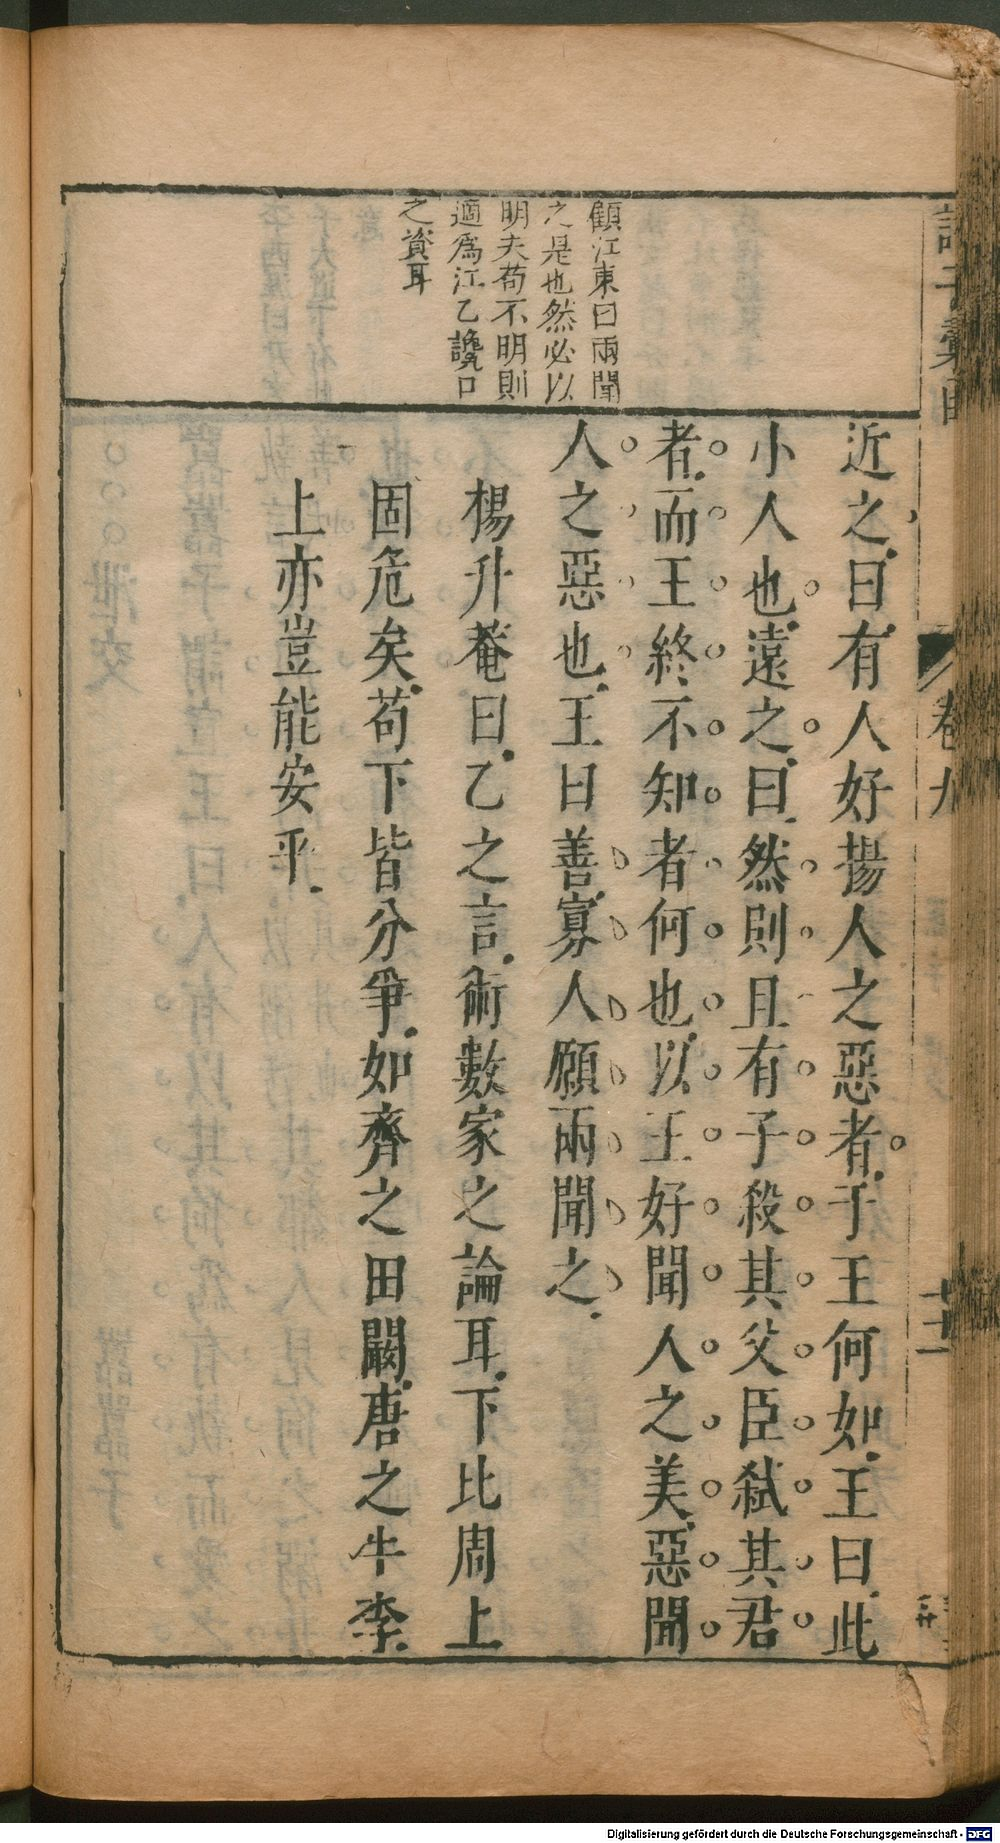 顧江東曰兩聞
之是也然必以
明夫苟不明則
適爲江乙讒口
之資耳
近之曰有人好揚人之惡者于王何如王曰此
小人也遠之曰然則且有子殺其父臣弑其君
者而王終不知者何也以王好聞人之美惡聞
人之惡也王曰善寡人願兩聞之
楊升菴曰乙之言術數家之論耳下比周上
固危矣苟下皆分爭如齊之田闞唐之牛李
上亦豈能安乎
卷九
Digitalisierung gefördert durch die Deutsche Forschungsgemeinschaft - DFG